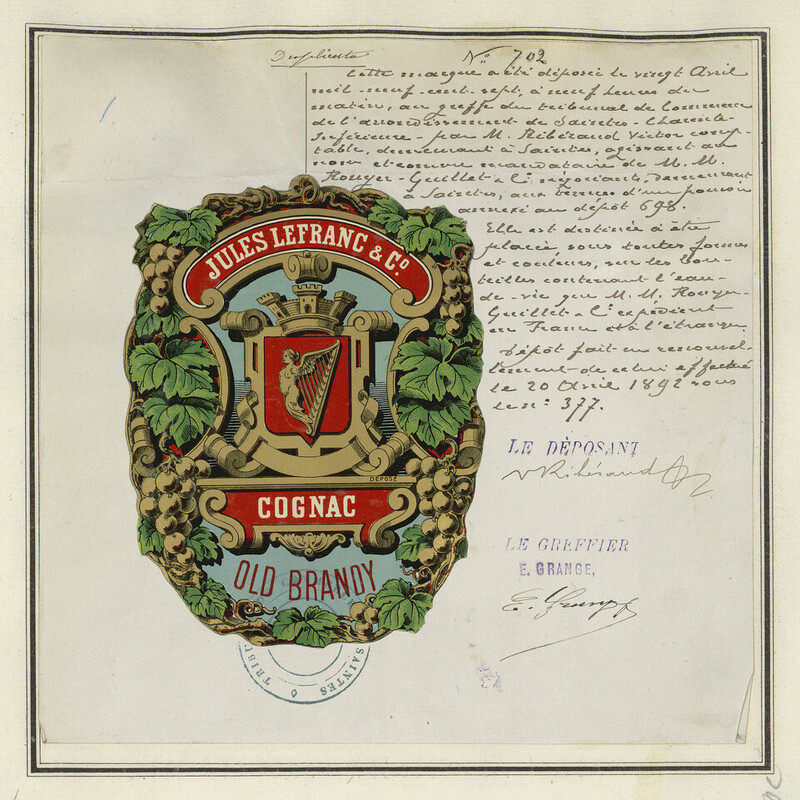 Duplicata
No 702
Cette marque a été déposée le vingt Avril
mil-neuf-cent-sept, à neuf heures du
matin, au greffe du tribunal de Commerce
de l'arrondissement de Saintes-Charente-
Inférieure- par M. Ribéraud Victor comp-
table, demeurant à Saintes, agissant au
nom et comme mandataire de M. M.
Rouyer-Guillet & Cie négociants, demeurant
à Saintes, aux termes d'un pouvoir
annexé au dépôt 698.
Elle est destinée à être
placée sous toutes formes
et couleurs, sur les bou-
teilles contenant l'eau-
de-vie que M. M. Rouyer-
Guillet & Cie expédient
en France et à l'étranger.
Dépôt fait en renouvel-
lement de celui effectué
le 20 Avril 1892 sous
le no 377.
JULES LEFRANC & Co
DEPOSÉ
COGNAC
OLD BRANDY
LE DÈPOSANT
V Ribéraud
LE GREFFIER
E. GRANGE,
E. Grange
TRIBU
SAINTES